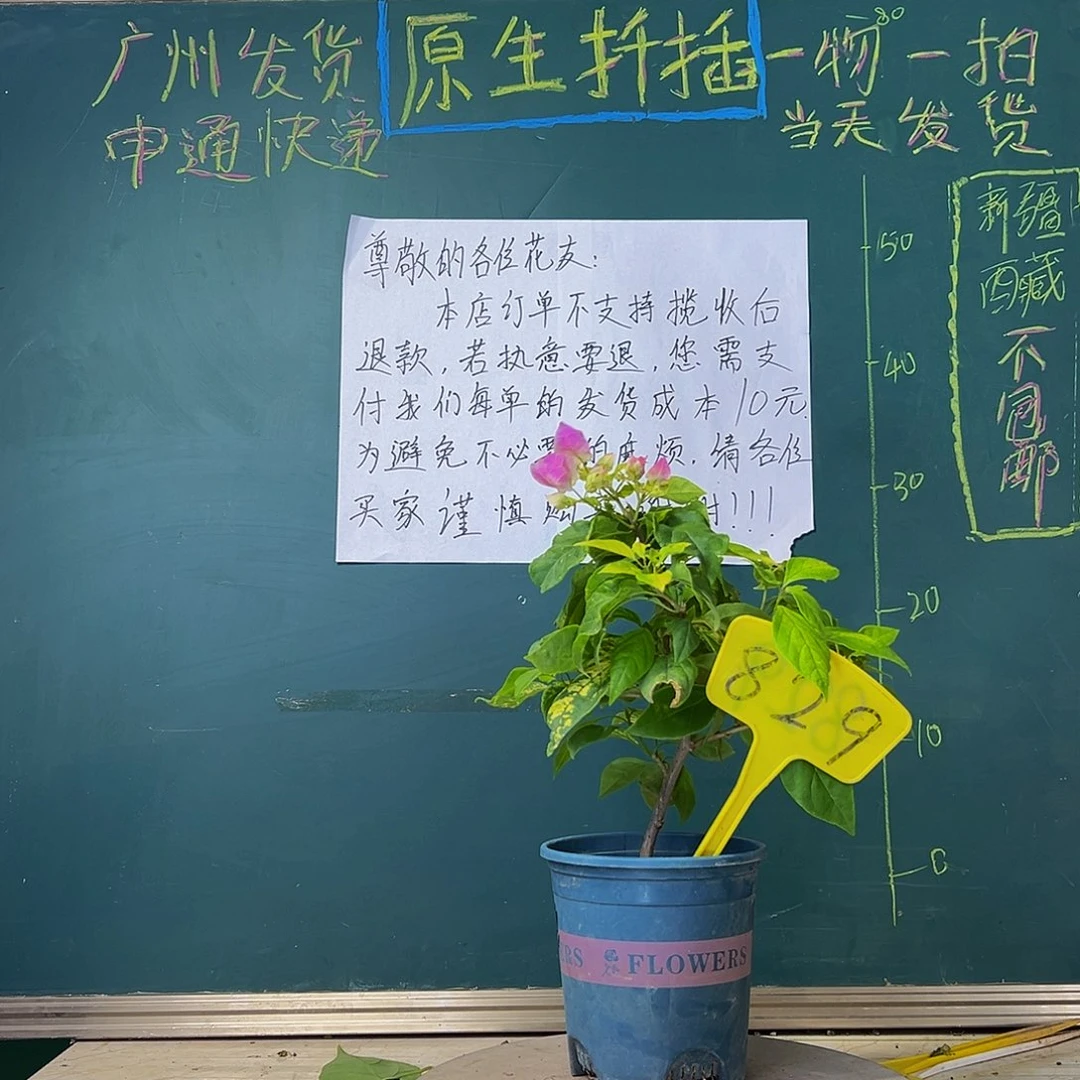 广州发货
申通快递
原生扦插
一物一拍
当天发货
新疆
西藏
不
包
邮
80
50
40
30
20
10
0
尊敬的各位花友:
本店订单不支持揽收后
退款,若执意要退,您需支
付我们每单的发货成本10元.
为避免不必要的麻烦.请各位
买家谨慎购!!!
829
ERS FLOWERS